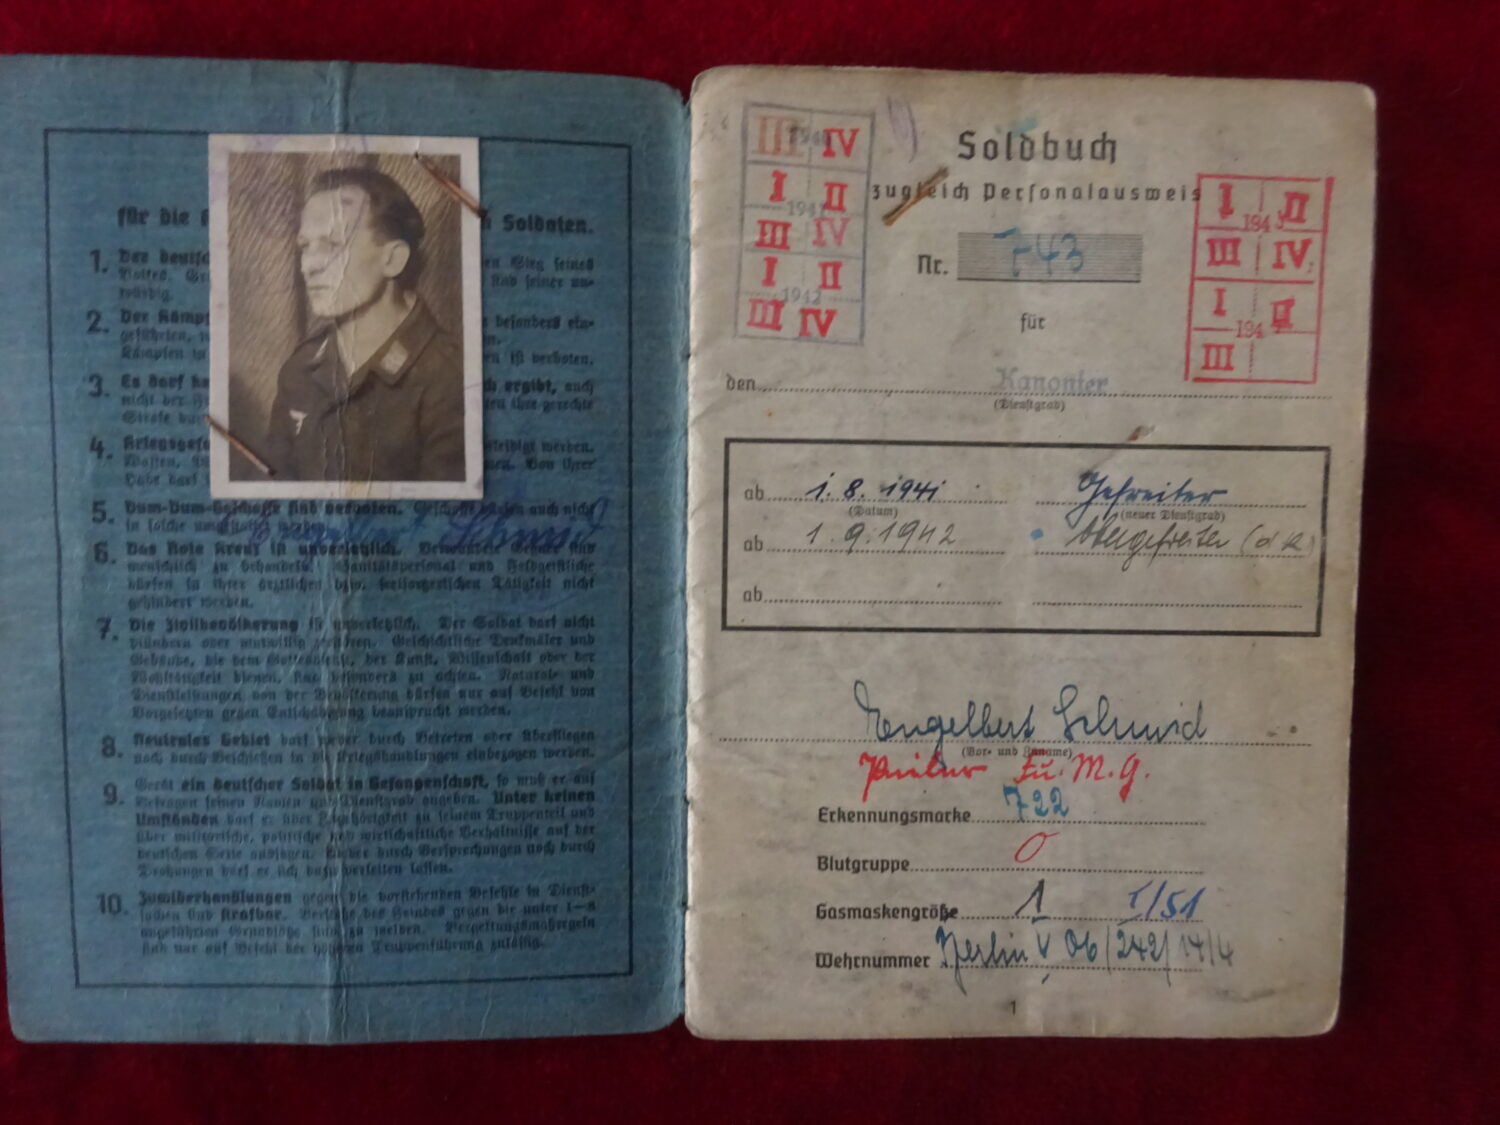 für die
Soldaten.
1.
en Sieg seines
2. Der Kämpf
besonders ein-
n.
en ist verboten.
3. Es darf
ergibt, auch
nicht der
Strafe
4. Kriegsgefa
Waffen,
sen. Von ihrer
5. Dum-Dum-Geschosse sind verboten.
Engelbert Schmid
6. Das Rote Kreuz ist unverletzlich.
menschlich zu behandeln. Sanitätspersonal und Feldgeistliche
dürfen in ihrer ärztlichen bzw. seelsorgerischen Tätigkeit nicht
gehindert werden.
7. Die Zivilbevölkerung ist unverletzlich. Der Soldat darf nicht
plündern oder mutwillig zerstören. Geschichtliche Denkmäler und
Gebäude, die dem Gottesdienst, der Kunst, Wissenschaft oder der
Wohltätigkeit dienen, sind besonders zu achten. Natural- und
Dienstleistungen von der Bevölkerung dürfen nur auf Befehl von
Vorgesetzten gegen Entschädigung beansprucht werden.
8. Neutrales Gebiet darf weder durch Betreten oder Überfliegen
noch durch Beschießen in die Kriegshandlungen einbezogen werden.
9. Gerät ein deutscher Soldat in Gefangenschaft, so muß er auf
Befragen seinen Namen und Dienstgrad angeben. Unter keinen
Umständen darf er über Zugehörigkeit zu seinem Truppenteil und
über militärische, politische und wirtschaftliche Verhältnisse auf der
deutschen Seite aussagen. Weder durch Versprechungen noch durch
Drohungen darf er sich dazu verleiten lassen.
10. Zuwiderhandlungen gegen die vorstehenden Befehle in Dienst-
sachen sind strafbar. Verstöße des Feindes gegen die unter 1—8
angeführten Grundsätze sind zu melden. Vergeltungsmaßregeln
sind nur auf Befehl der höheren Truppenführung zulässig.
III IV
I II
194
III IV
I II
1942
III IV
Soldbuch
zugleich Personalausweis
I II
194
III IV
I II
194
III
Nr. 743
für
den Kanonier
(Dienstgrad)
ab 1. 8. 1941 Gefreiter
(Datum) (neuer Dienstgrad)
ab 1. 9. 1942 Obergefreiter
ab
Engelbert Schmid
(Vor- und Zuname)
Fu. M. G.
Erkennungsmarke 722
Blutgruppe O
Gasmaskengröße 1 I/51
Wehrnummer Berlin V 06/242/14/4
1